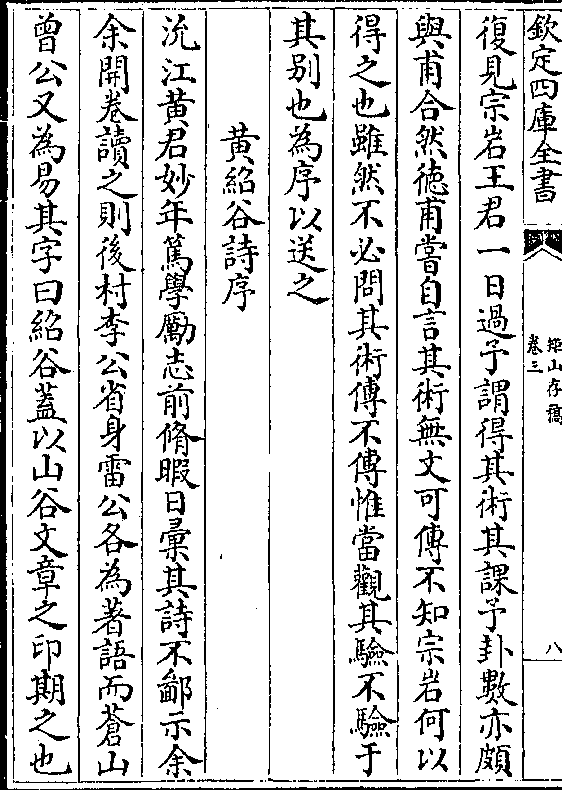 欽定四庫全書
矩山存稿
卷三
八
復見宗岩王君一日過予謂得其術其課予卦數亦頗
與甫合然徳甫嘗自言其術無文可傳不知宗岩何以
得之也雖然不必問其術傳不傳惟當觀其驗不驗于
其别也為序以送之
黄紹谷詩序
沅江黄君妙年篤學勵志前脩暇日彚其詩不鄙示余
余開卷讀之則後村李公省身雷公各為著語而蒼山
曾公又為易其字曰紹谷蓋以山谷文章之印期之也